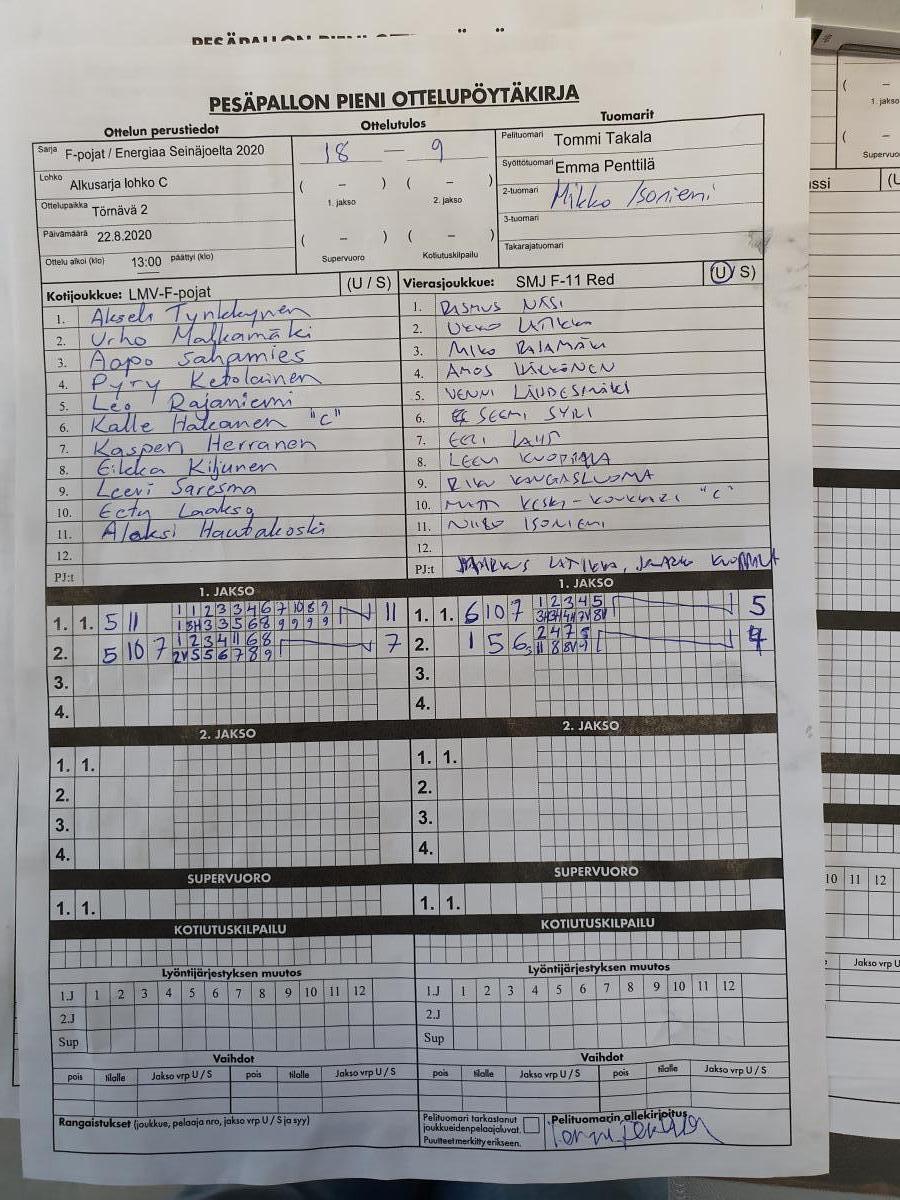 PESÄPALLON PIENI OTTELUPÖYTÄKIRJA
Ottelun perustiedot
Ottelutulos
Tuomarit
Sarja F-pojat / Energiaa Seinäjoelta 2020
18 — 9
Pelituomari Tommi Takala
Lohko Alkusarja lohko C
( – ) ( – )
1. jakso 2. jakso
Syöttötuomari Emma Penttilä
Ottelupaikka Törnävä 2
2-tuomari Mikko Isoniemi
Päivämäärä 22.8.2020
( – ) ( – )
Supervuoro Kotiutuskilpailu
3-tuomari
Ottelu alkoi (klo) 13:00 päättyi (klo)
Takarajatuomari
Kotijoukkue: LMV-F-pojat (U / S)
1. Akseli Tynkkynen
2. Urho Malkamäki
3. Aapo Sahamies
4. Pyry Ketolainen
5. Leo Rajaniemi
6. Kalle Hakanen "C"
7. Kasperi Herranen
8. Eikka Kiljunen
9. Leevi Saresma
10. Eetu Laakso
11. Hautakoski
12.
PJ:t
Vierasjoukkue: SMJ F-11 Red (U / S)
1. RASMUS NÄSI
2. UKKO LATIKKA
3. MIKO RAJAMÄKI
4. AMOS
5. VENNI LÄHDESMÄKI
6. SEEMI SYRI
7. EELI
8. LEEVI KUOPPALA
9. RIKU KANGASLUOMA
10. KESKI- "C"
11. NIILO ISONIEMI
12.
PJ:t MARKUS LATIKKA, KUOPPALA
1. JAKSO
1. 1. 5 11
1 1 2 3 3 4 6 7 10 8 9
11
2. 5 10 7
1 2 3 4 11 6 8
7
3.
4.
1. JAKSO
1. 1. 6 10 7
1 2 3 4 5
5
2. 1 5 6
2 4 7 5
4
3.
4.
2. JAKSO
1. 1.
2.
3.
4.
2. JAKSO
1. 1.
2.
3.
4.
SUPERVUORO
1. 1.
SUPERVUORO
1. 1.
KOTIUTUSKILPAILU
KOTIUTUSKILPAILU
Lyöntijärjestyksen muutos
1.J 1 2 3 4 5 6 7 8 9 10 11 12
2.J
Sup
Lyöntijärjestyksen muutos
1.J 1 2 3 4 5 6 7 8 9 10 11 12
2.J
Sup
Vaihdot
pois tilalle Jakso vrp U / S pois tilalle Jakso vrp U / S
Vaihdot
pois tilalle Jakso vrp U / S pois tilalle Jakso vrp U / S
Rangaistukset (joukkue, pelaaja nro, jakso vrp U / S ja syy)
Pelituomari tarkastanut
joukkueidenpelaajaluvat.
Puutteet merkitty erikseen.
Pelituomarin allekirjoitus
( –
1. jakso
( –
Supervuo
ssi
10 11 12
Jakso vrp U